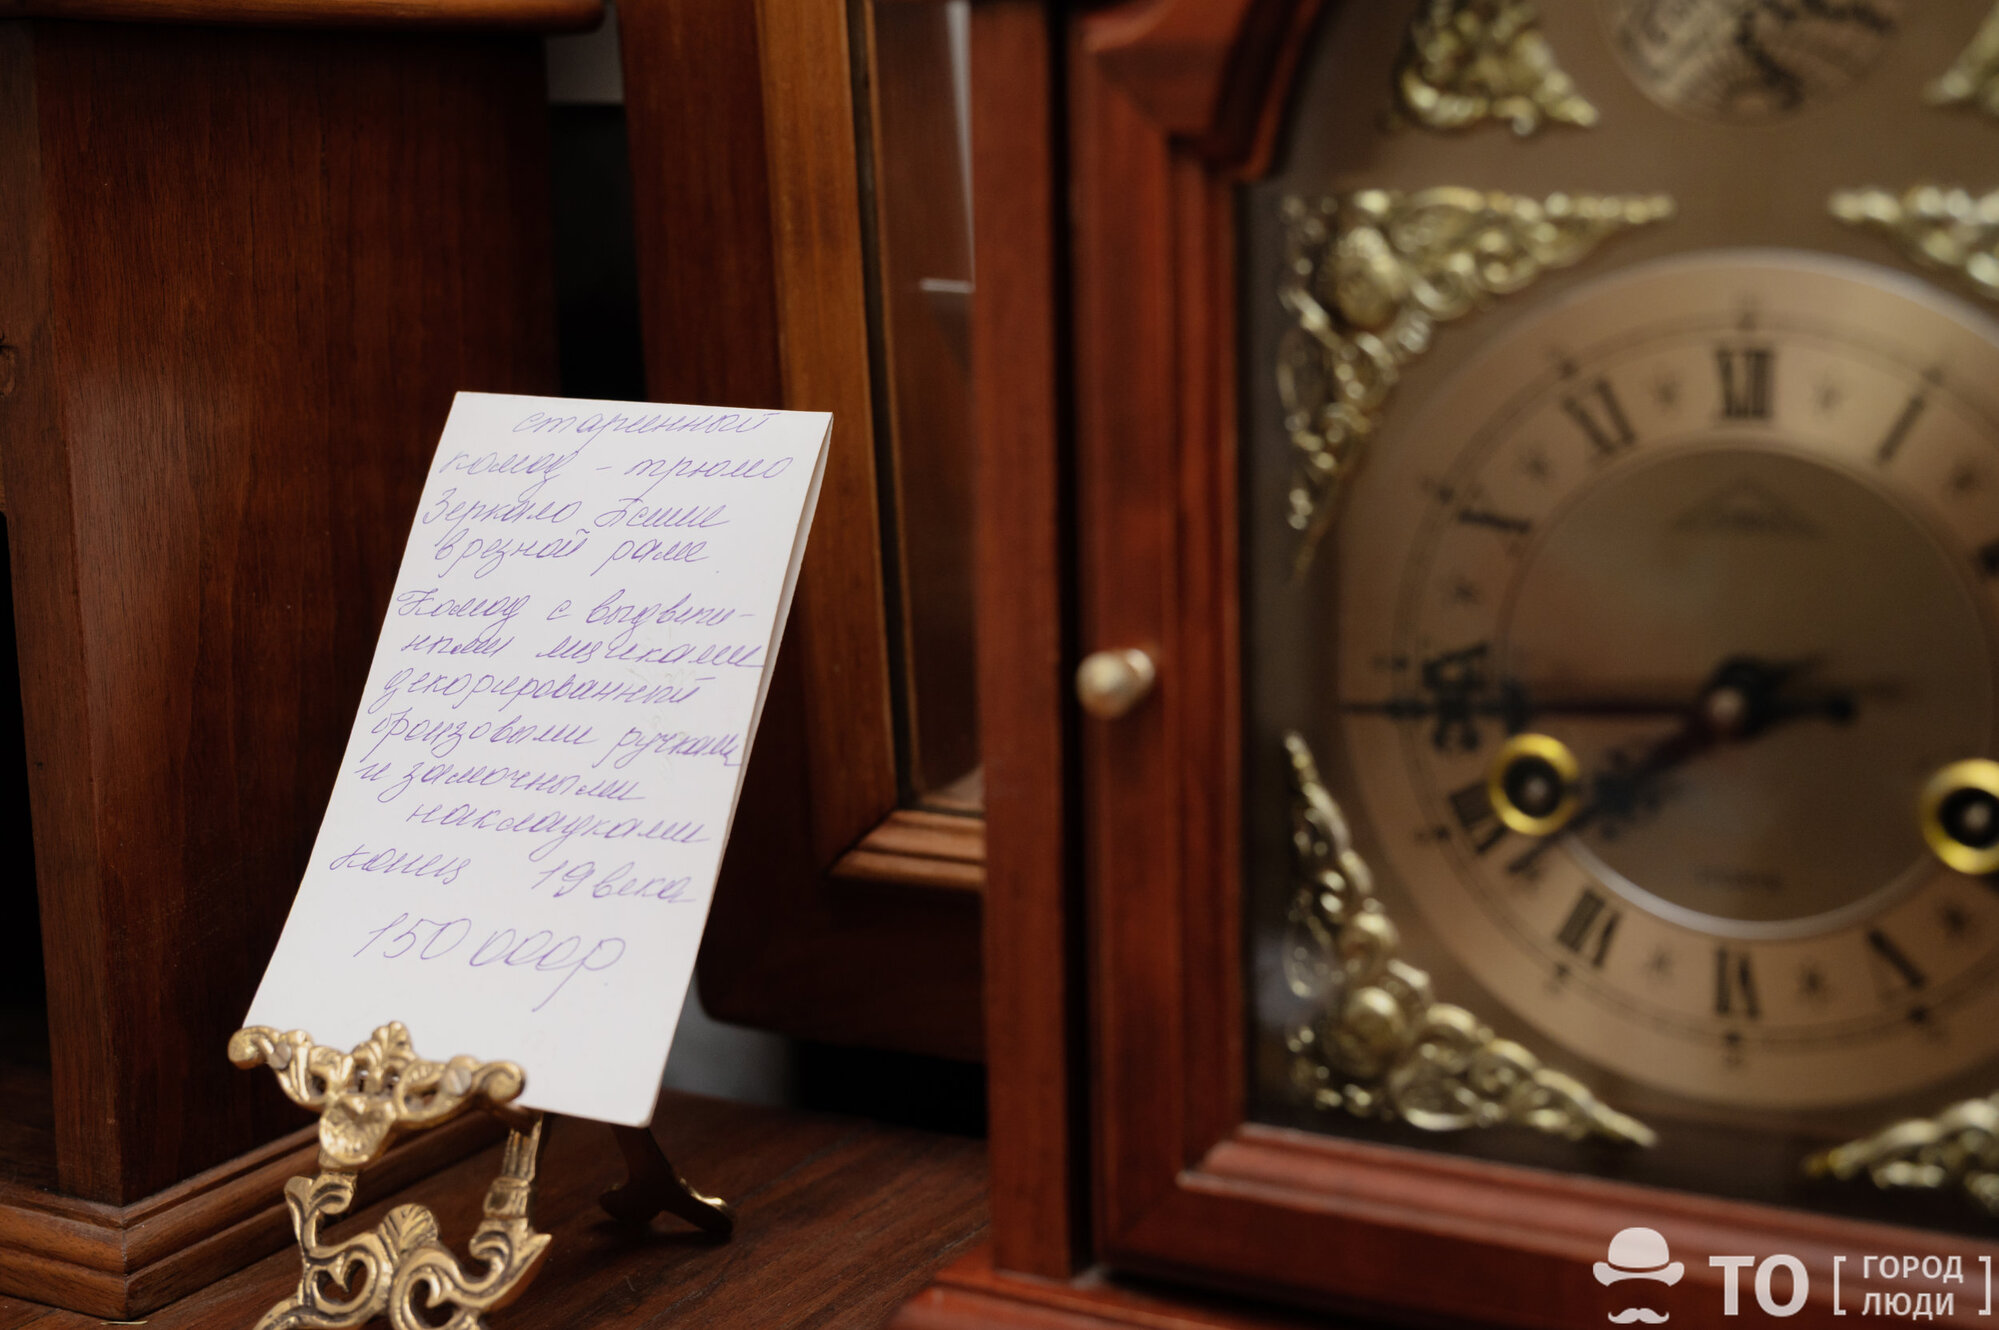 старинный
комод - трюмо
Зеркало Псише
в резной раме
Комод с выдвиж-
ными ящиками
декорированный
бронзовыми ручками
и замочными
накладками
конец 19 века
150 000р.
XII
I
XI
X
IX
VIII
VII
VI
V
ТО [ГОРОД
ЛЮДИ]